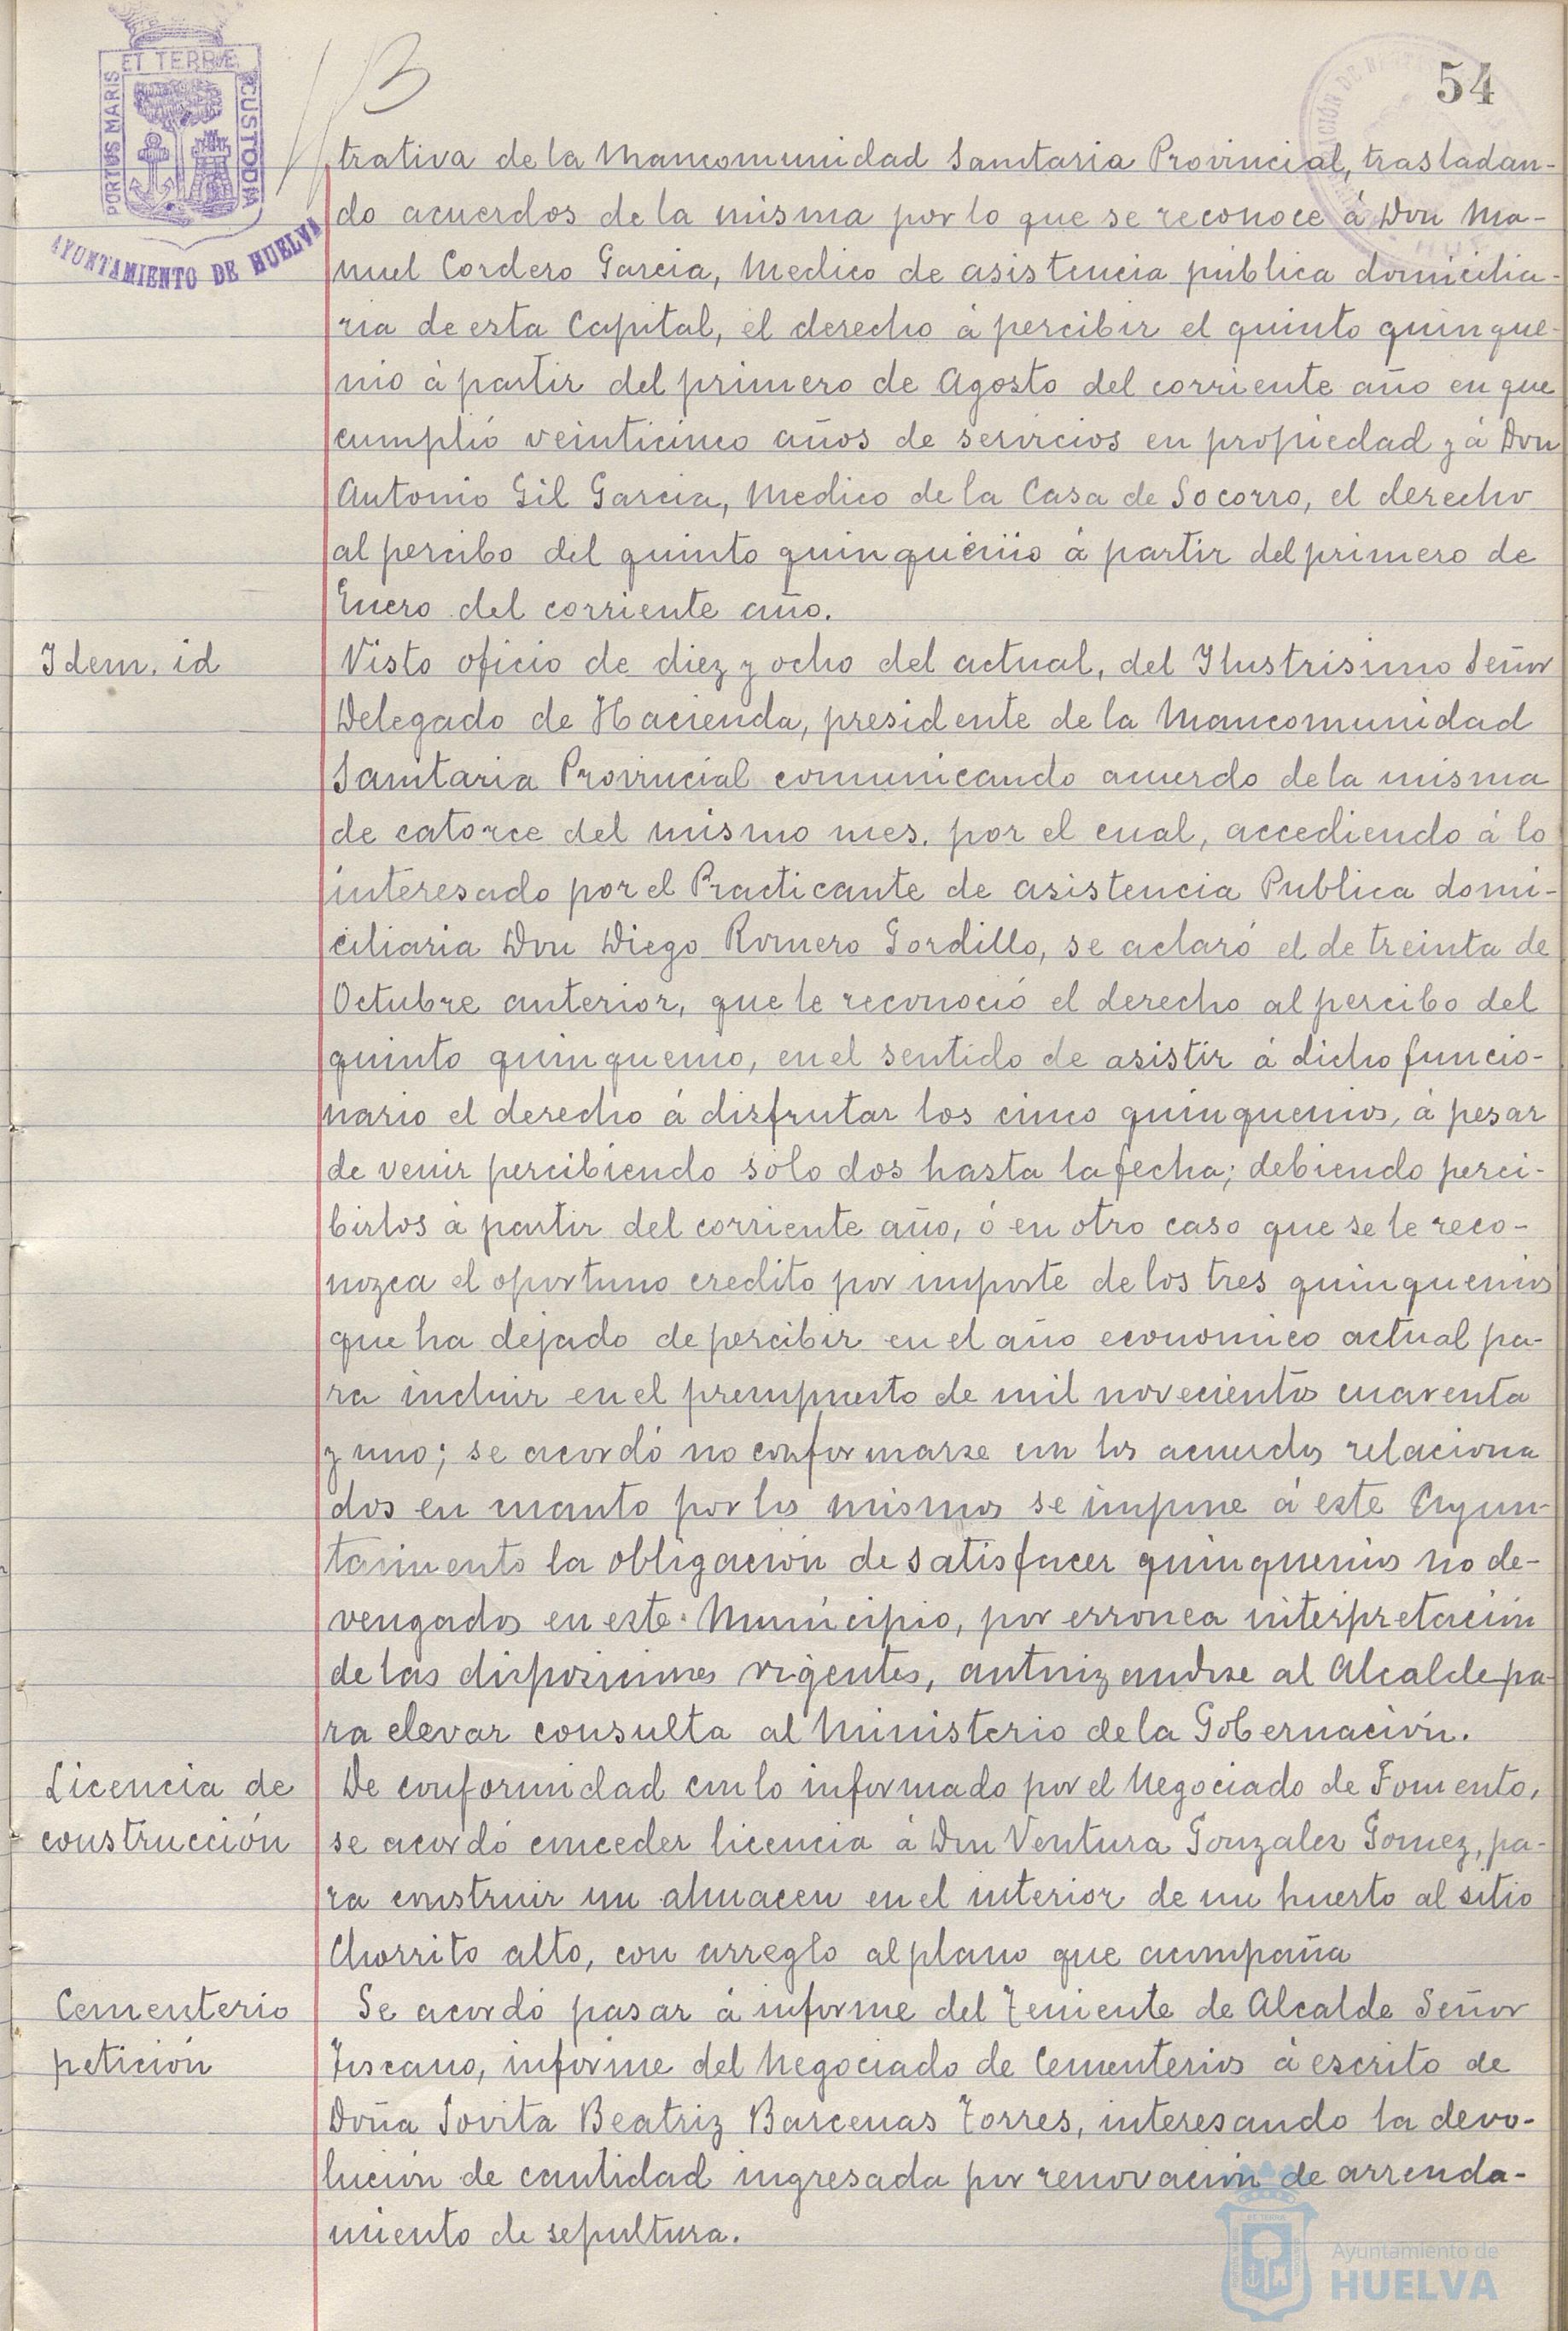 54
ET TERRÆ
PORTUS MARIS
CUSTODIA
AYUNTAMIENTO DE HUELVA
trativa de la Mancomunidad Sanitaria Provincial, trasladan-
do acuerdos de la misma por lo que se reconoce á Don Ma-
nuel Cordero Garcia, Medico de asistencia pública domicilia-
ria de esta Capital, el derecho á percibir el quinto quinque-
nio á partir del primero de Agosto del corriente año en que
cumplió veinticinco años de servicios en propiedad y á Don
Antonio Gil Garcia, Medico de la Casa de Socorro, el derecho
al percibo del quinto quinquenio á partir del primero de
Enero del corriente año.
Idem. id
Visto oficio de diez y ocho del actual, del Ilustrisimo Señor
Delegado de Hacienda, presidente de la Mancomunidad
Sanitaria Provincial comunicando acuerdo de la misma
de catorce del mismo mes, por el cual, accediendo á lo
interesado por el Practicante de asistencia Publica domi-
ciliaria Don Diego Romero Gordillo, se aclaró el de treinta de
Octubre anterior, que le reconoció el derecho al percibo del
quinto quinquenio, en el sentido de asistir á dicho funcio-
nario el derecho á disfrutar los cinco quinquenios, á pesar
de venir percibiendo sólo dos hasta la fecha; debiendo perci-
birlos á partir del corriente año, ó en otro caso que se le reco-
nozca el oportuno credito por importe de los tres quinquenios
que ha dejado de percibir en el año economico actual pa-
ra incluir en el presupuesto de mil novecientos cuarenta
y uno; se acordó no conformarse con los acuerdos relaciona
dos en cuanto por los mismos se impone á este Ayun-
tamiento la obligación de satisfacer quinquenios no de-
vengados en este Municipio, por erronea interpretación
de las disposiciones vigentes, autorizandose al Alcalde pa-
ra elevar consulta al Ministerio de la Gobernación.
Licencia de
construcción
De conformidad con lo informado por el Negociado de Fomento,
se acordó conceder licencia á Don Ventura Gonzalez Gomez, pa-
ra construir un almacen en el interior de un huerto al sitio
Chorrito alto, con arreglo al plano que acompaña
Cementerio
petición
Se acordó pasar á informe del Teniente de Alcalde Señor
Tiscano, informe del Negociado de Cementerios á escrito de
Doña Jovita Beatriz Barcenas Torres, interesando la devo-
lución de cantidad ingresada por renovación de arrenda-
miento de sepultura.
Ayuntamiento de
HUELVA